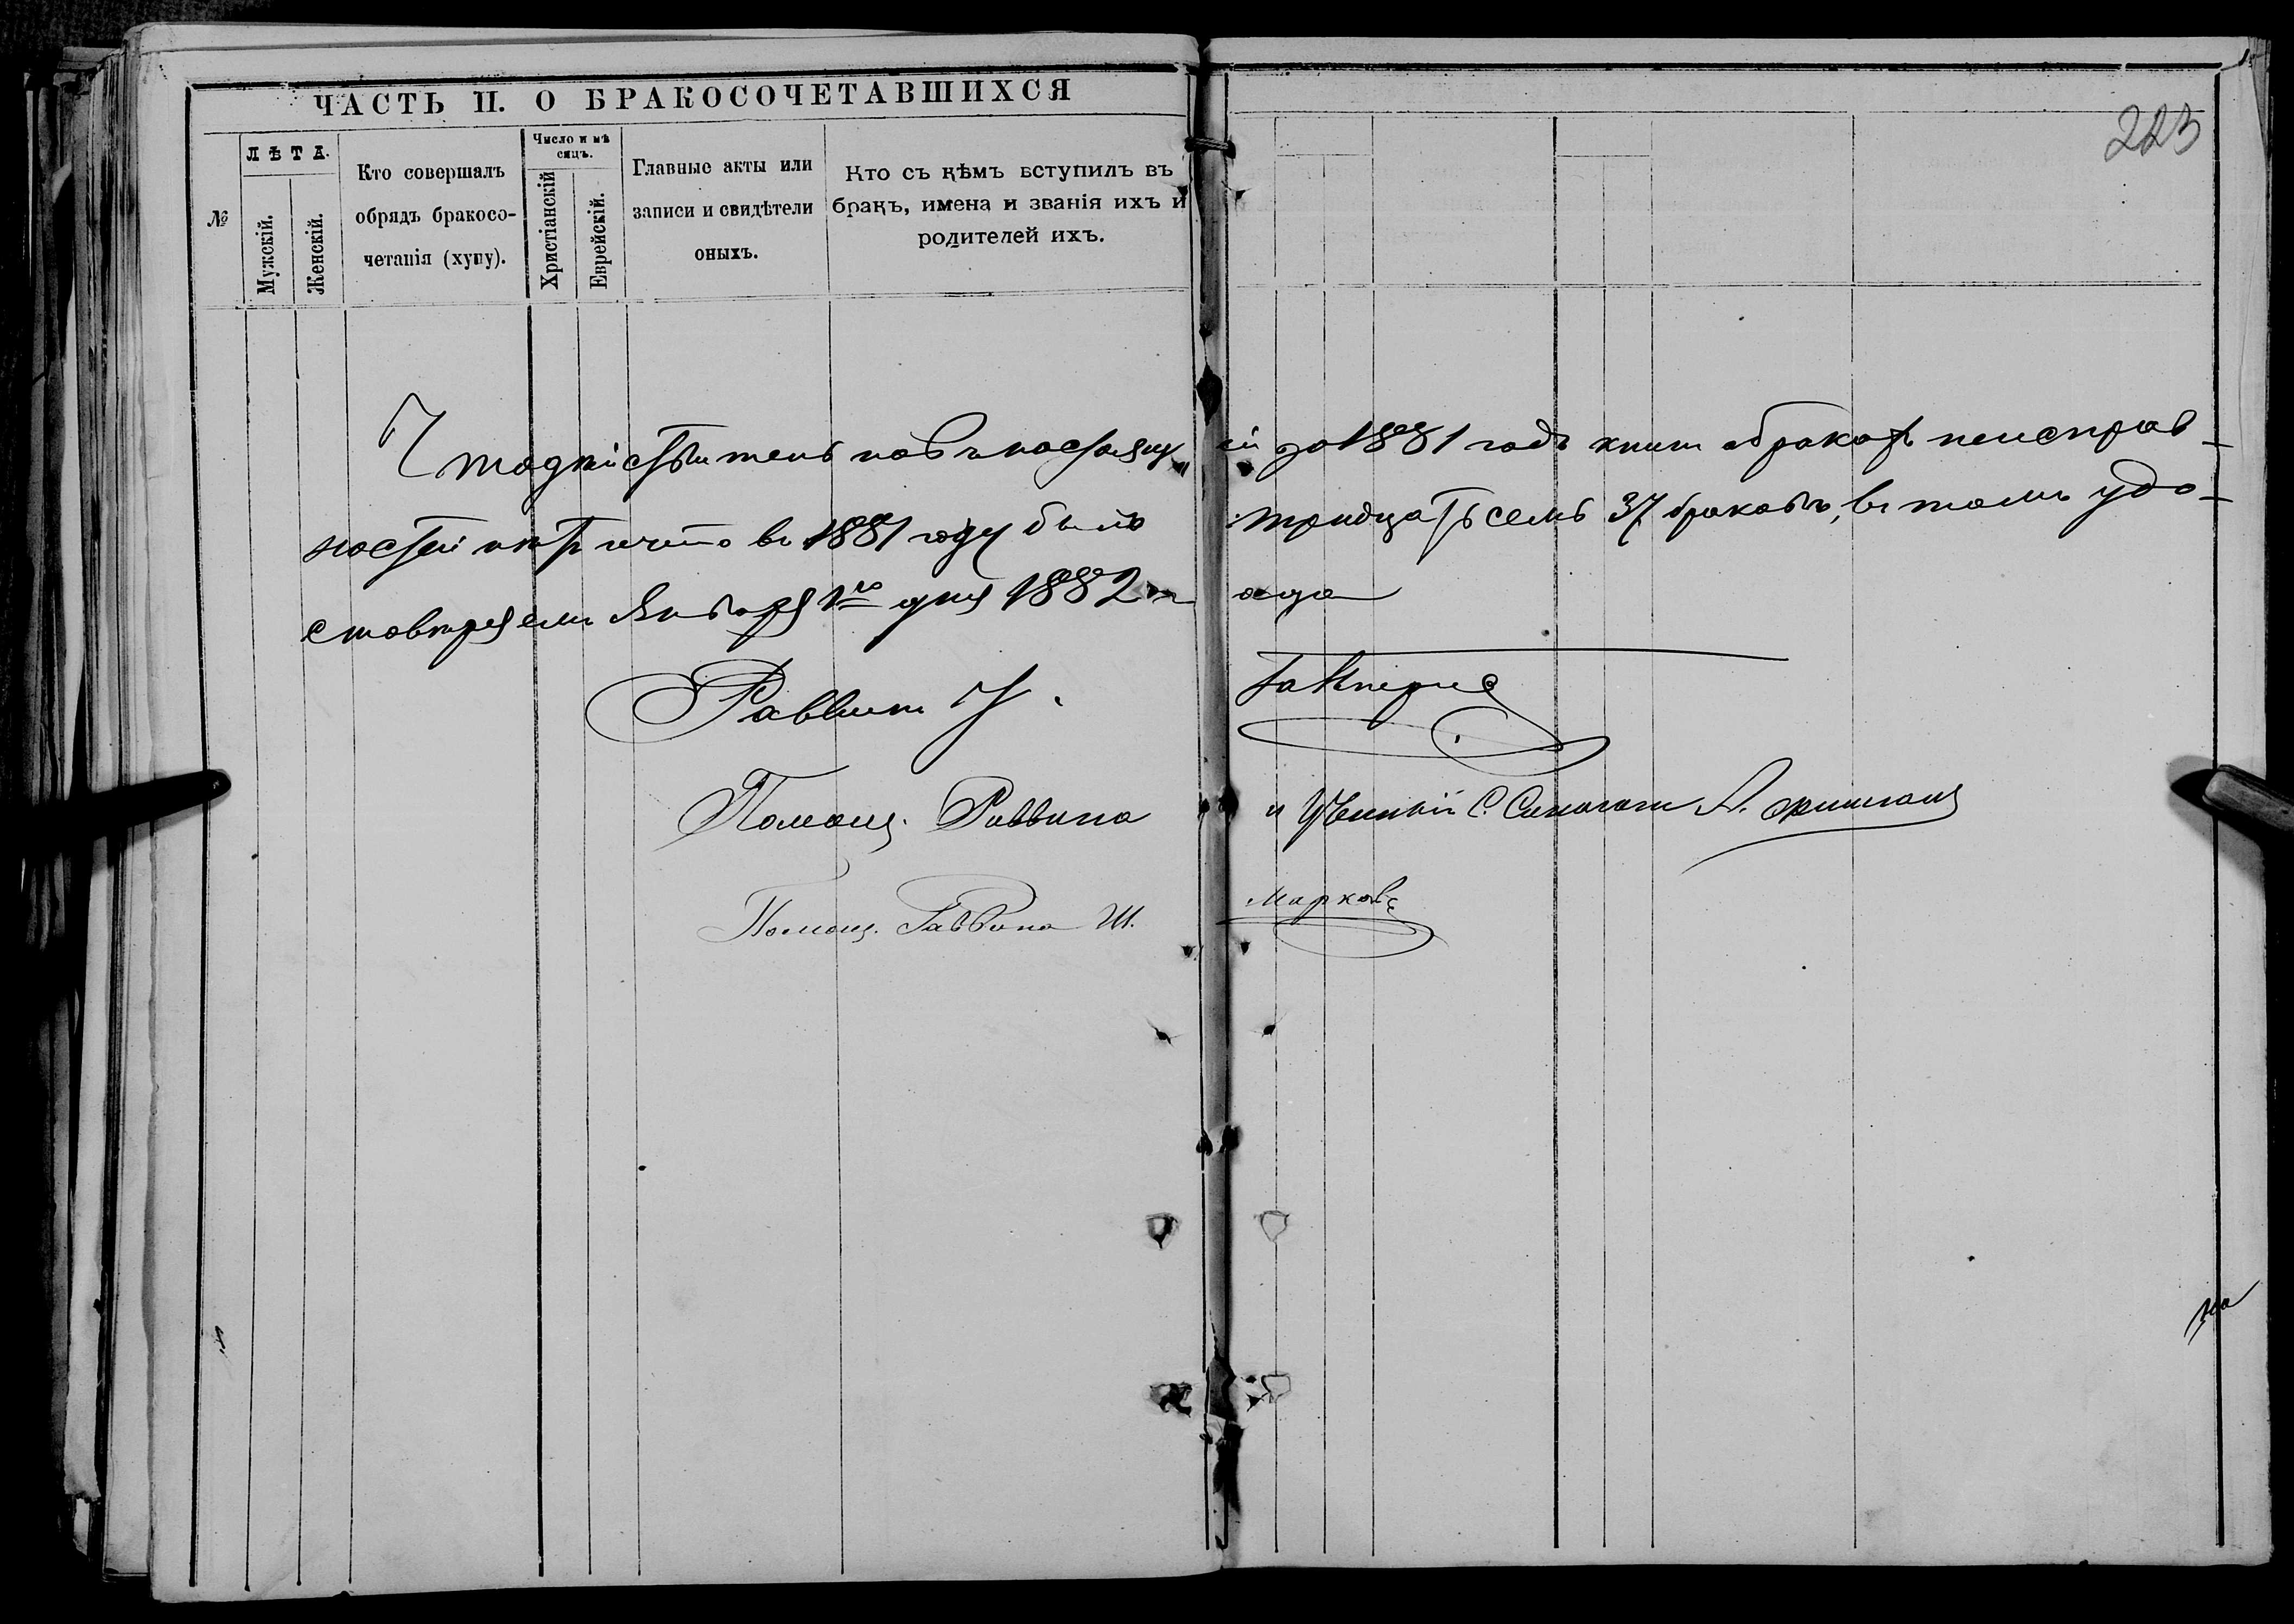 ЧАСТЬ II. О БРАКОСОЧЕТАВШИХСЯ
223
№
ЛѢТА.
Мужскій.
Женскій.
Кто совершалъ
обрядъ бракосо-
четанія (хупу).
Число и мѣ
сяцъ.
Христіанскій
Еврейскій.
Главные акты или
записи и свидѣтели
оныхъ.
Кто съ кѣмъ вступилъ въ
бракъ, имена и званія ихъ и
родителей ихъ.
Что дѣйствительно въ настоящей за 1881 годъ книги о бракахъ неисправ-
ностей нѣтъ и что въ 1881 году было тридцать семь 37 браковъ, въ томъ удо-
стовѣряемъ Января 1го дня 1882 года
Раввинъ
Помощ. Раввина и Ученый С. Синагоги
Помощ. Раввина Ш. Марковъ